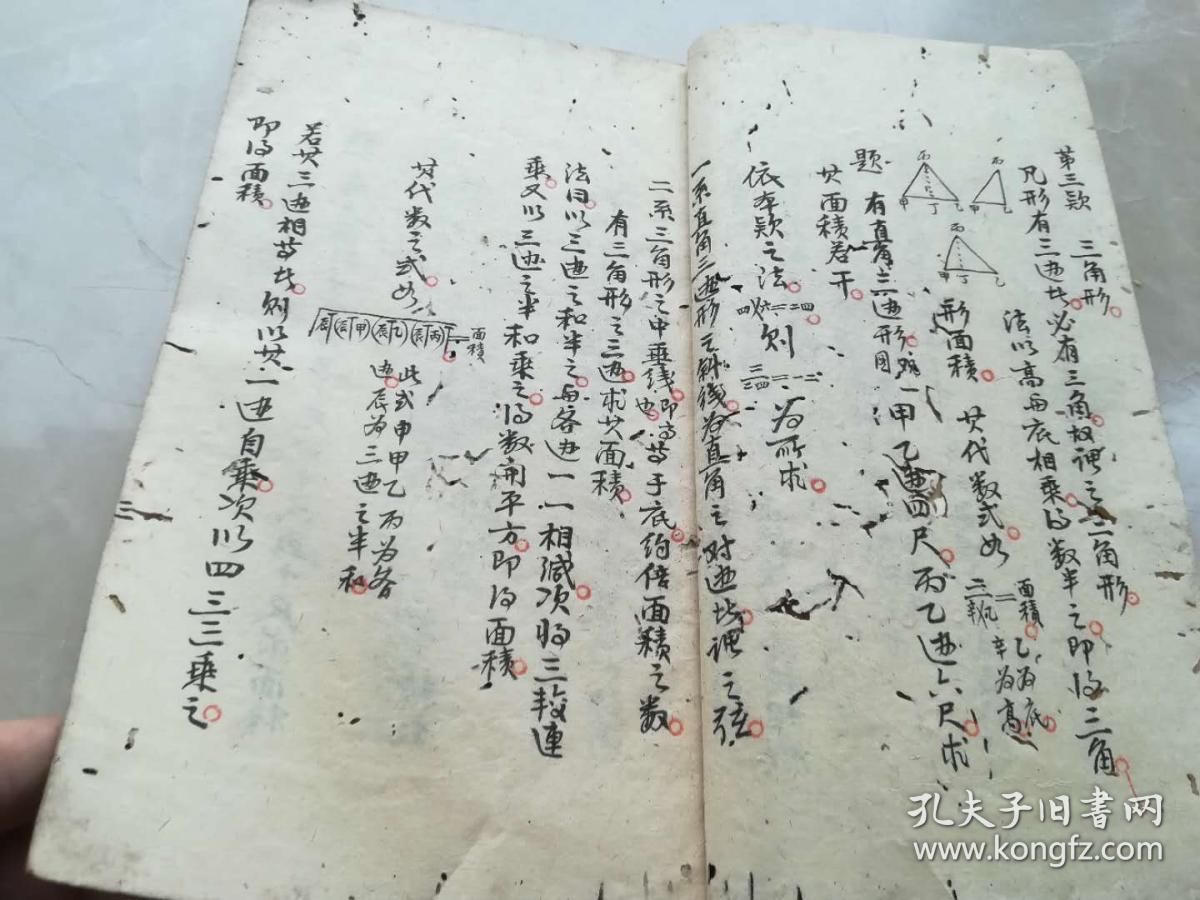 第三款 三角形
凡形有三边者必有三角故谓之三角形
法以高与底相乘得数半之即得三角
形面積 其代数式如 =面積 乙为底 辛为高
丙 甲 丁 乙
丙 丁 乙
丙 甲 丁 乙
题 有直角三边形 一甲乙边四尺丙乙边六尺求
其面積若干
依本款之法 四×六=二四 则 二四=一二 为所求
一系直角三边形之斜线为直角之对边者谓之弦
二系三角形之中垂线即高等于底约倍面積之数也
有三角形之三边求其面積
法曰以三边之和半之与各边一一相减项将三较連
乘又以三边之半和乘之得数開平方即得面積
其代数之式如 辰(辰丅甲)(辰丅乙)(辰丅丙)=面積 此式中甲乙丙为各
边辰为三边之半和
若其三边相等者则以其一边自乘次以四三三乘之
即得面積
孔夫子旧書网
www.kongfz.com